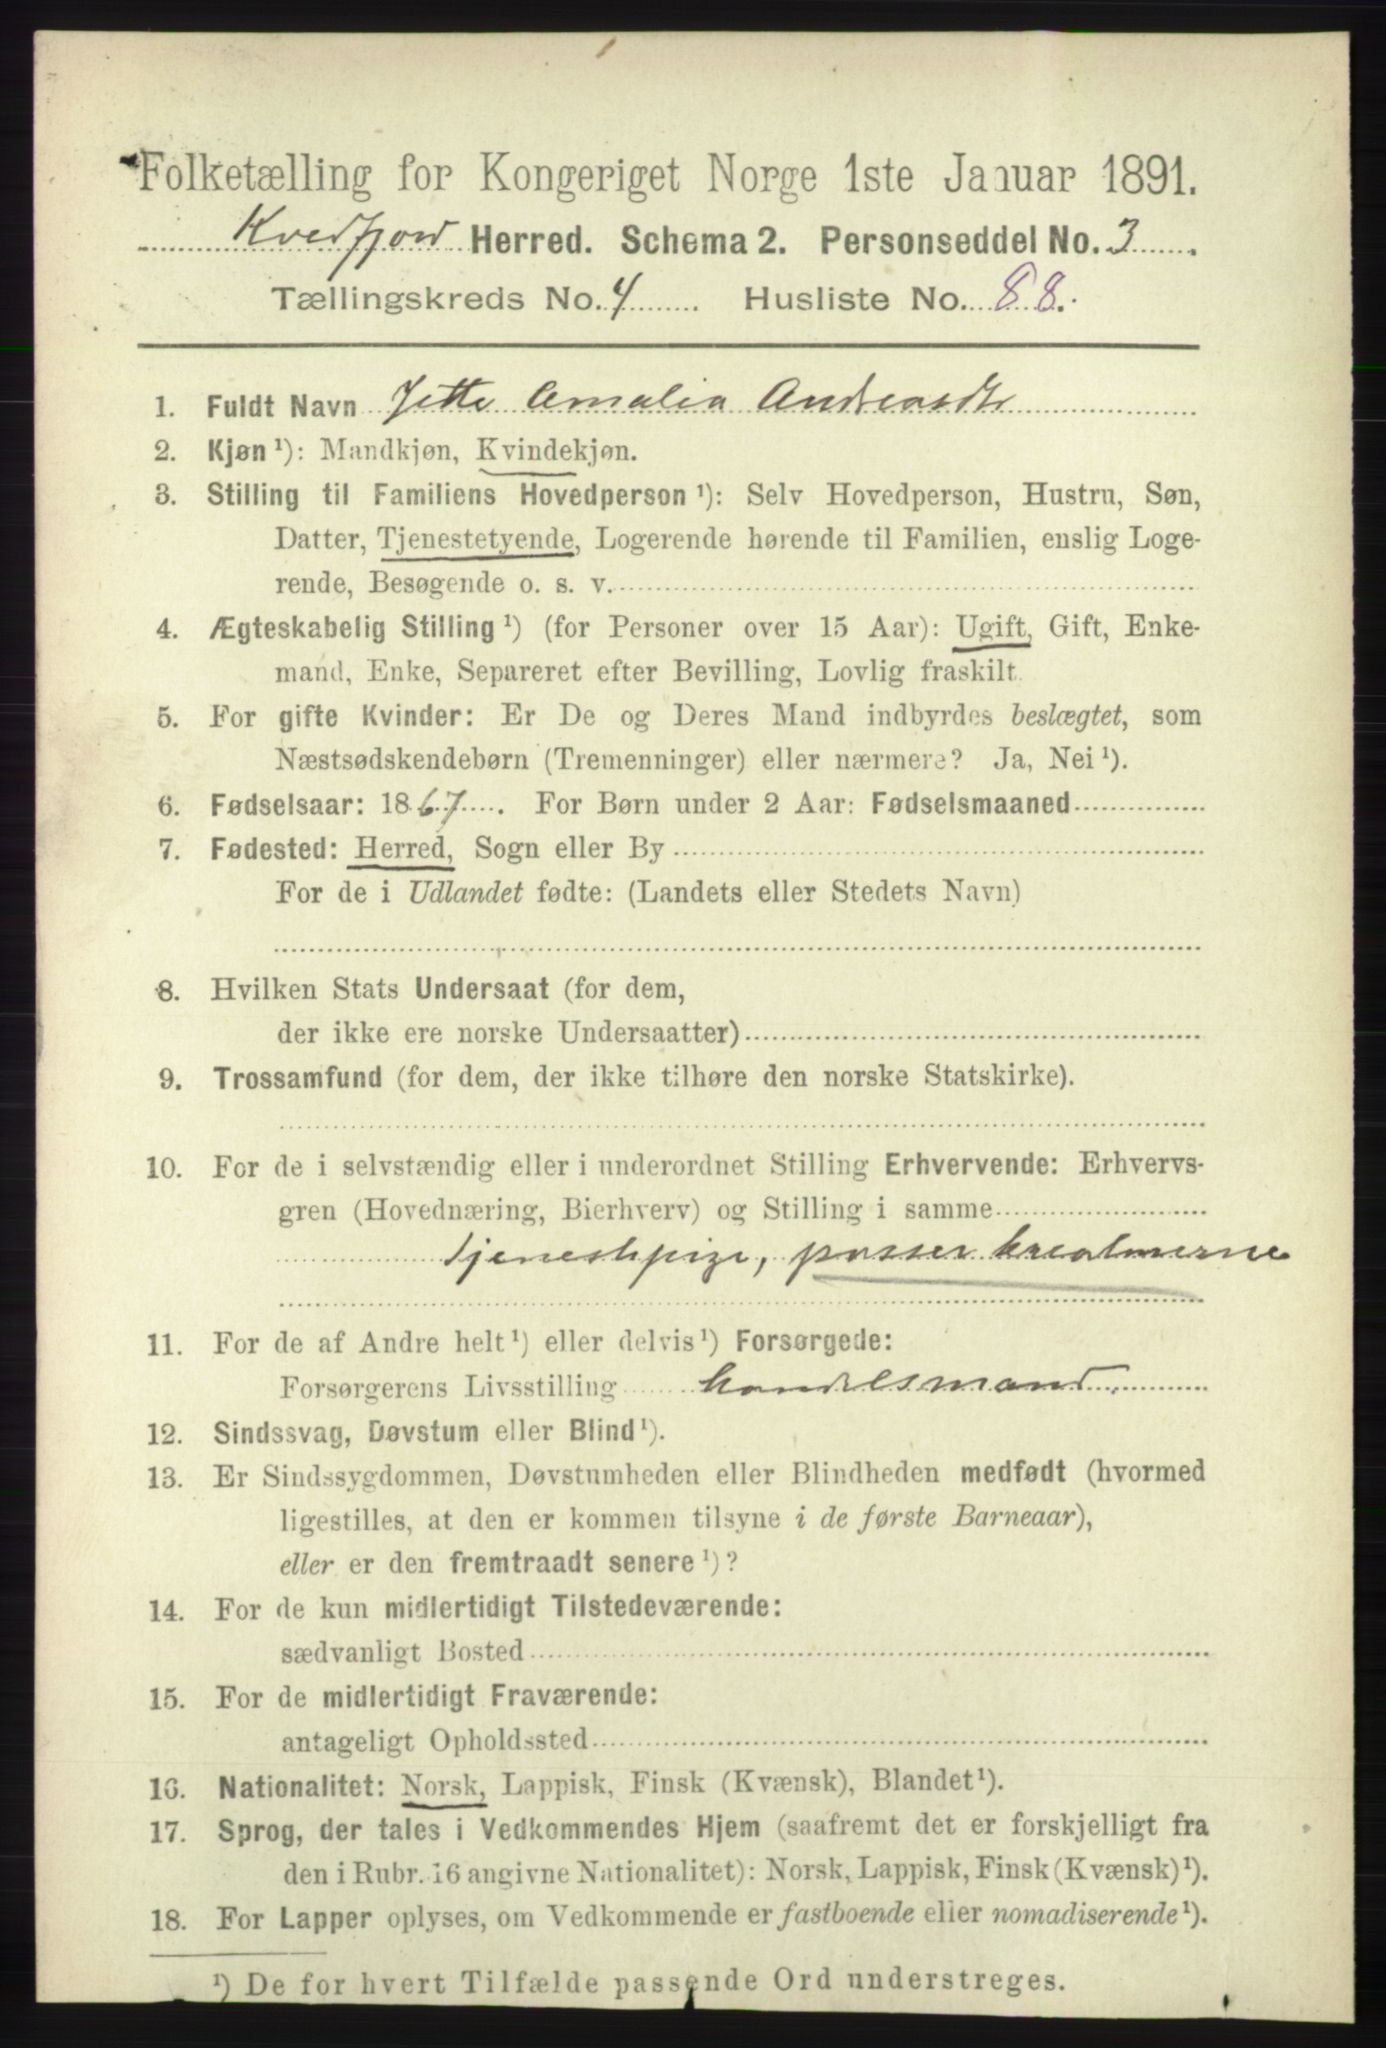 Folketælling for Kongeriget Norge 1ste Januar 1891.
Kvedfjord Herred. Schema 2. Personseddel No. 3.
Tællingskreds No. 4 Husliste No. 88.
1. Fuldt Navn Jette Amalia Andreasdtr
2. Kjøn ¹): Mandkjøn, Kvindekjøn.
3. Stilling til Familiens Hovedperson ¹): Selv Hovedperson, Hustru, Søn,
Datter, Tjenestetyende, Logerende hørende til Familien, enslig Loge-
rende, Besøgende o. s. v.
4. Ægteskabelig Stilling ¹) (for Personer over 15 Aar): Ugift, Gift, Enke-
mand, Enke, Separeret efter Bevilling, Lovlig fraskilt.
5. For gifte Kvinder: Er De og Deres Mand indbyrdes beslægtet, som
Næstsødskendebørn (Tremenninger) eller nærmere? Ja, Nei ¹).
6. Fødselsaar: 1867. For Børn under 2 Aar: Fødselsmaaned
7. Fødested: Herred, Sogn eller By
For de i Udlandet fødte: (Landets eller Stedets Navn)
8. Hvilken Stats Undersaat (for dem,
der ikke ere norske Undersaatter)
9. Trossamfund (for dem, der ikke tilhøre den norske Statskirke).
10. For de i selvstændig eller i underordnet Stilling Erhvervende: Erhvervs-
gren (Hovednæring, Bierhverv) og Stilling i samme
Tjenestpige, passer kreaturerne
11. For de af Andre helt ¹) eller delvis ¹) Forsørgede:
Forsørgerens Livsstilling handelsmand.
12. Sindssvag, Døvstum eller Blind ¹).
13. Er Sindssygdommen, Døvstumheden eller Blindheden medfødt (hvormed
ligestilles, at den er kommen tilsyne i de første Barneaar),
eller er den fremtraadt senere ¹)?
14. For de kun midlertidigt Tilstedeværende:
sædvanligt Bosted
15. For de midlertidigt Fraværende:
antageligt Opholdssted
16. Nationalitet: Norsk, Lappisk, Finsk (Kvænsk), Blandet ¹).
17. Sprog, der tales i Vedkommendes Hjem (saafremt det er forskjelligt fra
den i Rubr. 16 angivne Nationalitet): Norsk, Lappisk, Finsk (Kvænsk) ¹).
18. For Lapper oplyses, om Vedkommende er fastboende eller nomadiserende ¹).
¹) De for hvert Tilfælde passende Ord understreges.